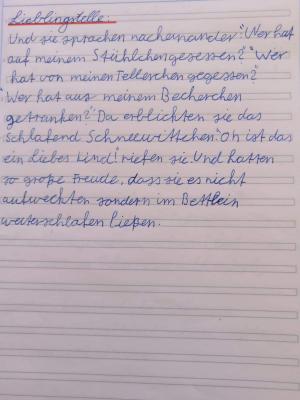 Lieblingstelle:
Und sie sprachen nacheinander: "Wer hat
auf meinem Stühlchen gesessen?" "Wer
hat von meinen Tellerchen gegessen?"
"Wer hat aus meinem Becherchen
getrunken?" Da erblickten sie das
schlafend Schneewittchen. "Oh ist das
ein liebes Kind!" riefen sie. Und hatten
so große Freude, dass sie es nicht
aufweckten sondern im Bettlein
weiterschlafen ließen.